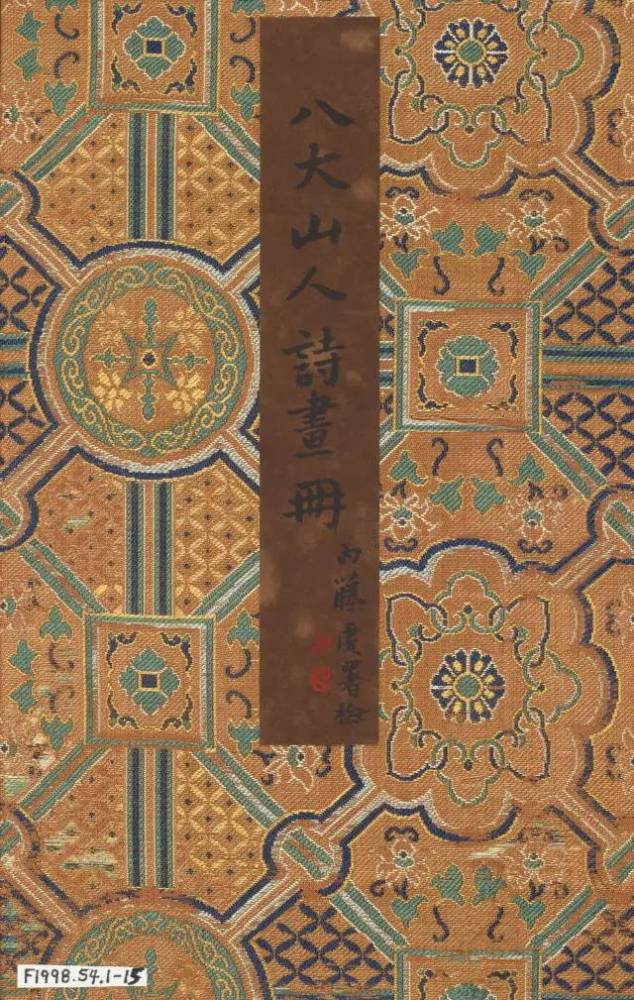 八大山人詩畫冊
內藤虎署檢
F1998.54.1-15